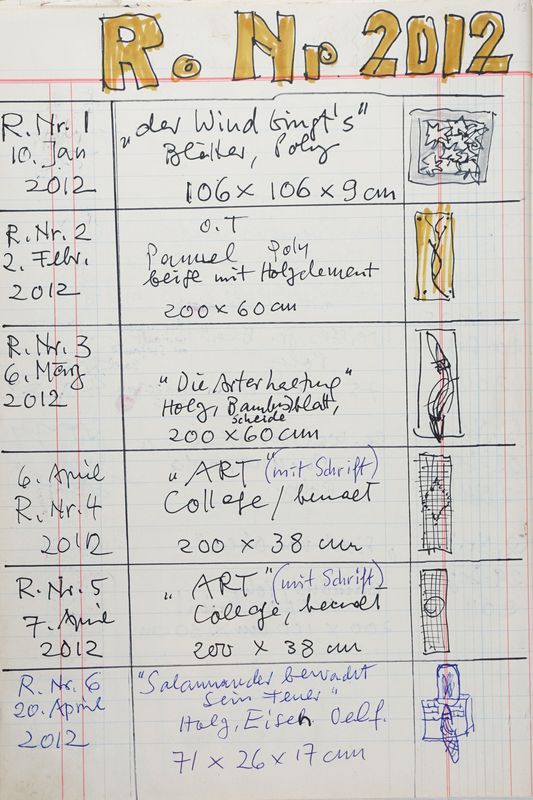 13
R. Nr 2012
R. Nr. 1
10. Jan
2012
„der Wind bringt's"
Blätter, Poly
106 x 106 x 9 cm
R. Nr. 2
2. Febr.
2012
O.T
Paneel Poly
beige mit Holzelement
200 x 60 cm
R. Nr. 3
6. März
2012
„Die Arterhaltung"
Holz, Bambusblatt,
scheide
200 x 60 cm
6. April
R. Nr. 4
2012
„ART" (mit Schrift)
Collage / bemalt
200 x 38 cm
R. Nr. 5
7. April
2012
„ART" (mit Schrift)
Collage, bemalt
200 x 38 cm
R. Nr. 6
20. April
2012
„Salamander bewacht
sein Feuer"
Holz, Eisen Oelf.
71 x 26 x 17 cm